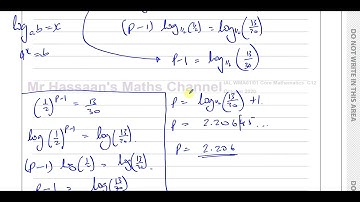 log_a b = x
a^x = b
(P-1) log_½(½) = log_½(13/30)
P-1 = log_½(13/30)
Mr Hassaan's Maths Channel
(1/2)^{P-1} = 13/30
log(1/2)^{P-1} = log(13/30)
(P-1) log(1/2) = log(13/30)
P-1 = log(13/30)
P = log_½(13/30) + 1.
P = 2.20645...
P = 2.206
DO NOT WRITE IN THIS AREA